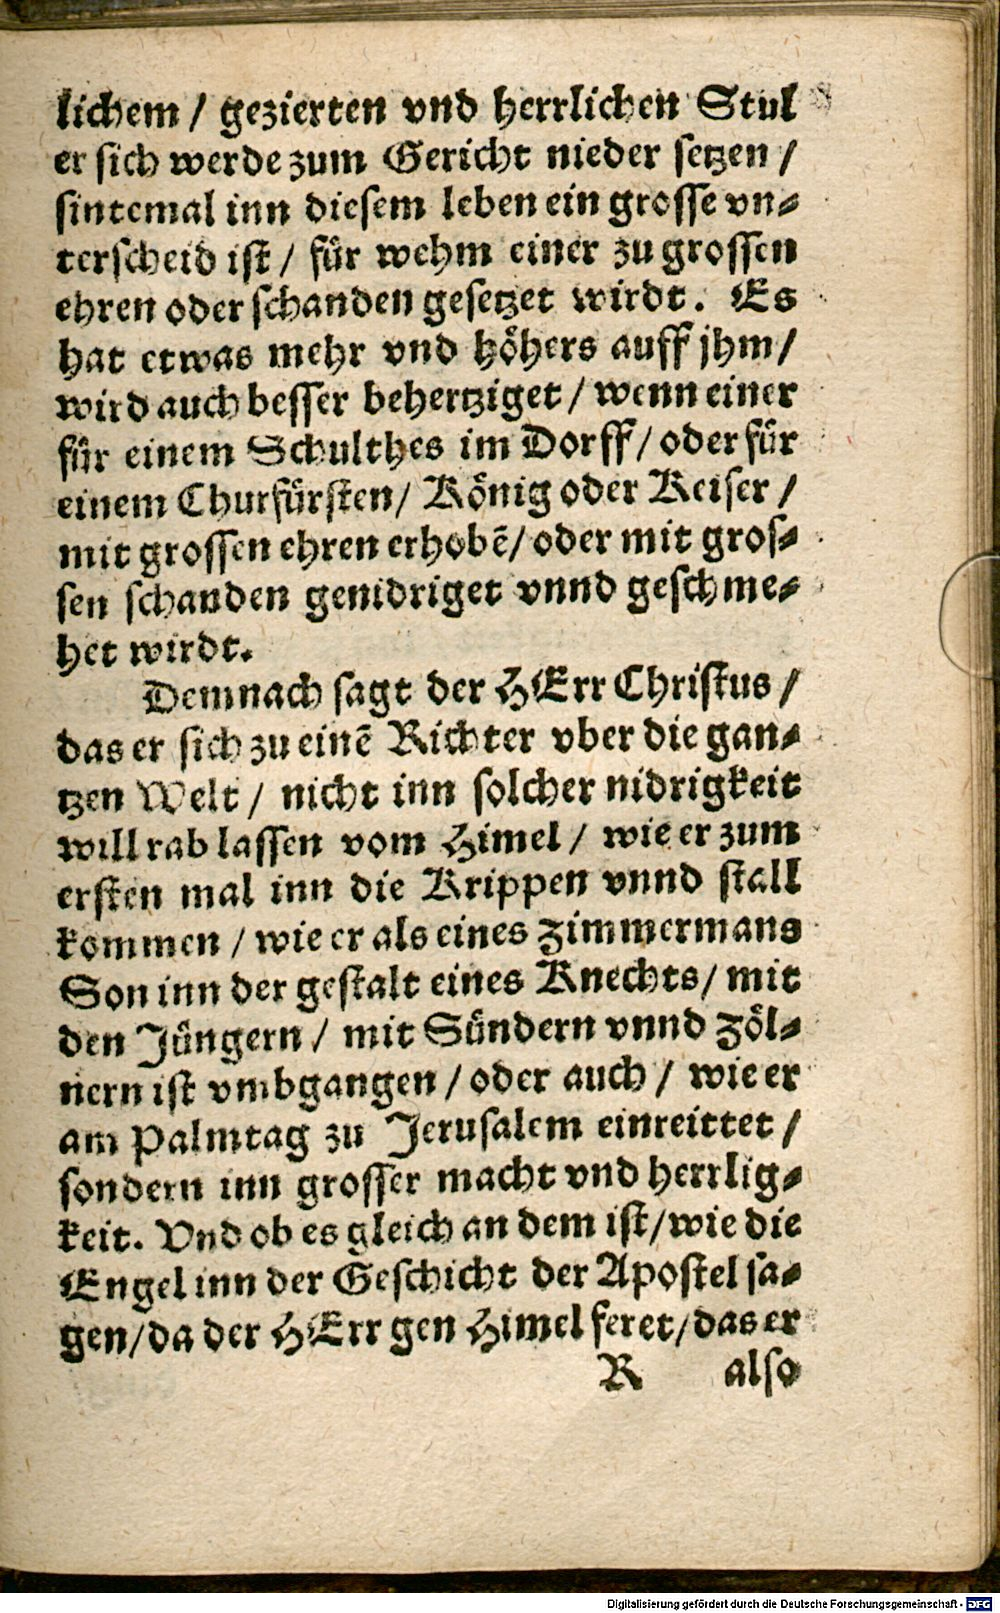 lichem / gezierten vnd herrlichen Stul
er sich werde zum Gericht nieder setzen /
sintemal inn diesem leben ein grosse vn-
terscheid ist / für wehm einer zu grossen
ehren oder schanden gesetzet wirdt. Es
hat etwas mehr vnd höhers auff jhm /
wird auch besser behertziget / wenn einer
für einem Schulthes im Dorff / oder für
einem Churfürsten / König oder Keiser /
mit grossen ehren erhobẽ / oder mit gros-
sen schanden genidriget vnnd geschme-
het wirdt.
Demnach sagt der HErr Christus /
das er sich zu einẽ Richter vber die gan-
tzen Welt / nicht inn solcher nidrigkeit
will rab lassen vom Himel / wie er zum
ersten mal inn die Krippen vnnd stall
kommen / wie er als eines Zimmermans
Son inn der gestalt eines Knechts / mit
den Jüngern / mit Sündern vnnd Zöl-
nern ist vmbgangen / oder auch / wie er
am Palmtag zu Jerusalem einreittet /
sondern inn grosser macht vnd herrlig-
keit. Vnd ob es gleich an dem ist / wie die
Engel inn der Geschicht der Apostel sa-
gen / da der HErr gen Himel feret / das er
R also
Digitalisierung gefördert durch die Deutsche Forschungsgemeinschaft - DFG